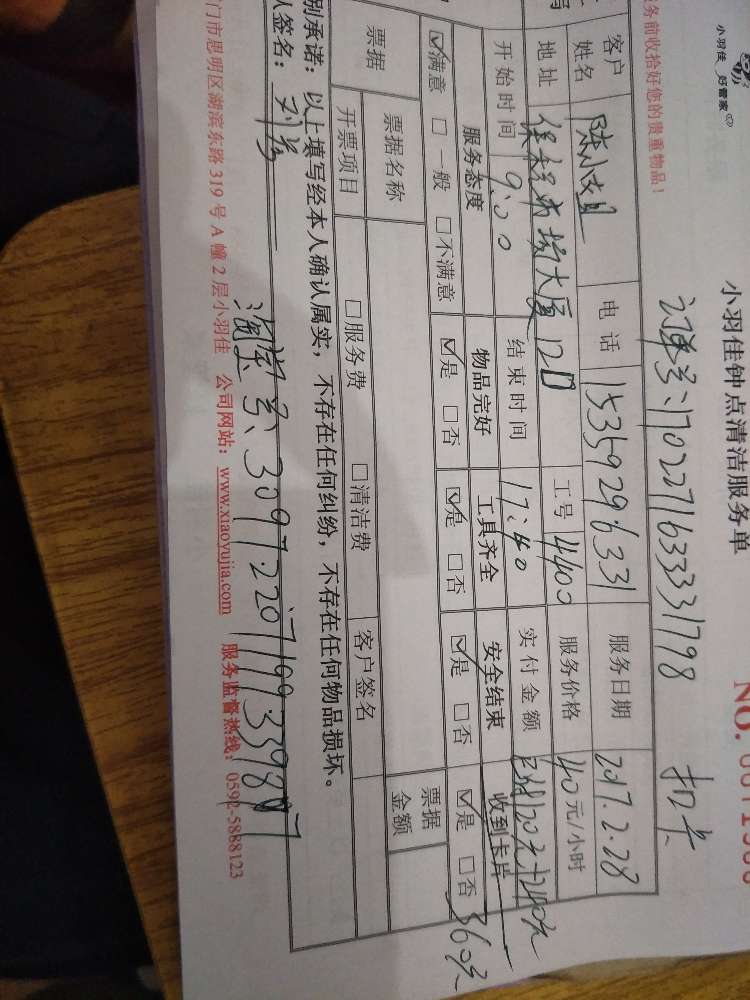 小羽佳 好管家
小羽佳钟点清洁服务单
NO.
订单号:1702271633331798 扣卡
务前收拾好您的贵重物品!
客户姓名 陈小姐 电话 15359296331 服务日期 2017.2.28
地址 保税市场大厦12 工号 4400 服务价格 40元/小时
开始时间 9:00 结束时间 17:40 实付金额
服务态度 物品完好 工具齐全 安全结束 收到卡片
☑满意 □一般 □不满意 ☑是 □否 ☑是 □否 ☑是 □否 ☑是 □否 360元
票据 票据名称 票据金额
开票项目 □服务费 □清洁费 客户签名
别承诺:以上填写经本人确认属实,不存在任何纠纷,不存在任何物品损坏。
人签名:
淘宝号:
门市思明区湖滨东路319号A幢2层小羽佳 公司网站:www.xiaoyujia.com 服务监督热线:0592-5888123